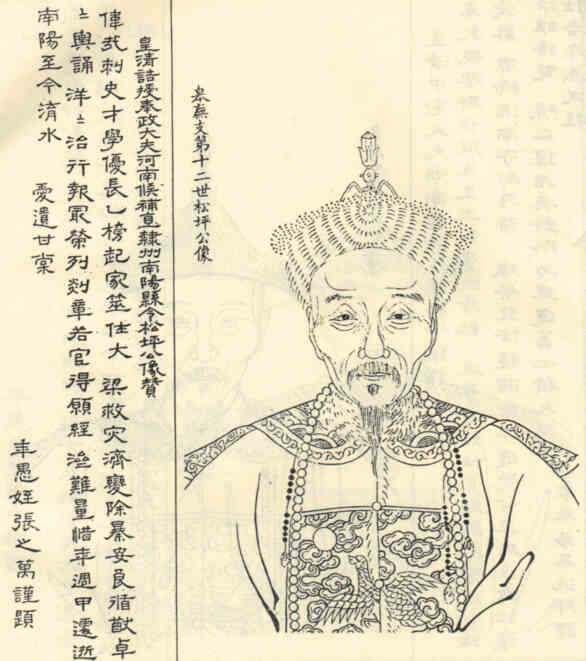 支第十二世松坪公像
皇清誥授奉政大夫河南候補直隸州南陽縣令松坪公像贊
偉哉刺史才學優長乙榜起家筮仕大梁救灾濟變除暴安良循猷卓
〻輿誦洋〻治行報最榮列剡章若官得願經濟難量惜年週甲遷逝
南陽至今淯水 愛遺甘棠
年愚姪張之萬謹題